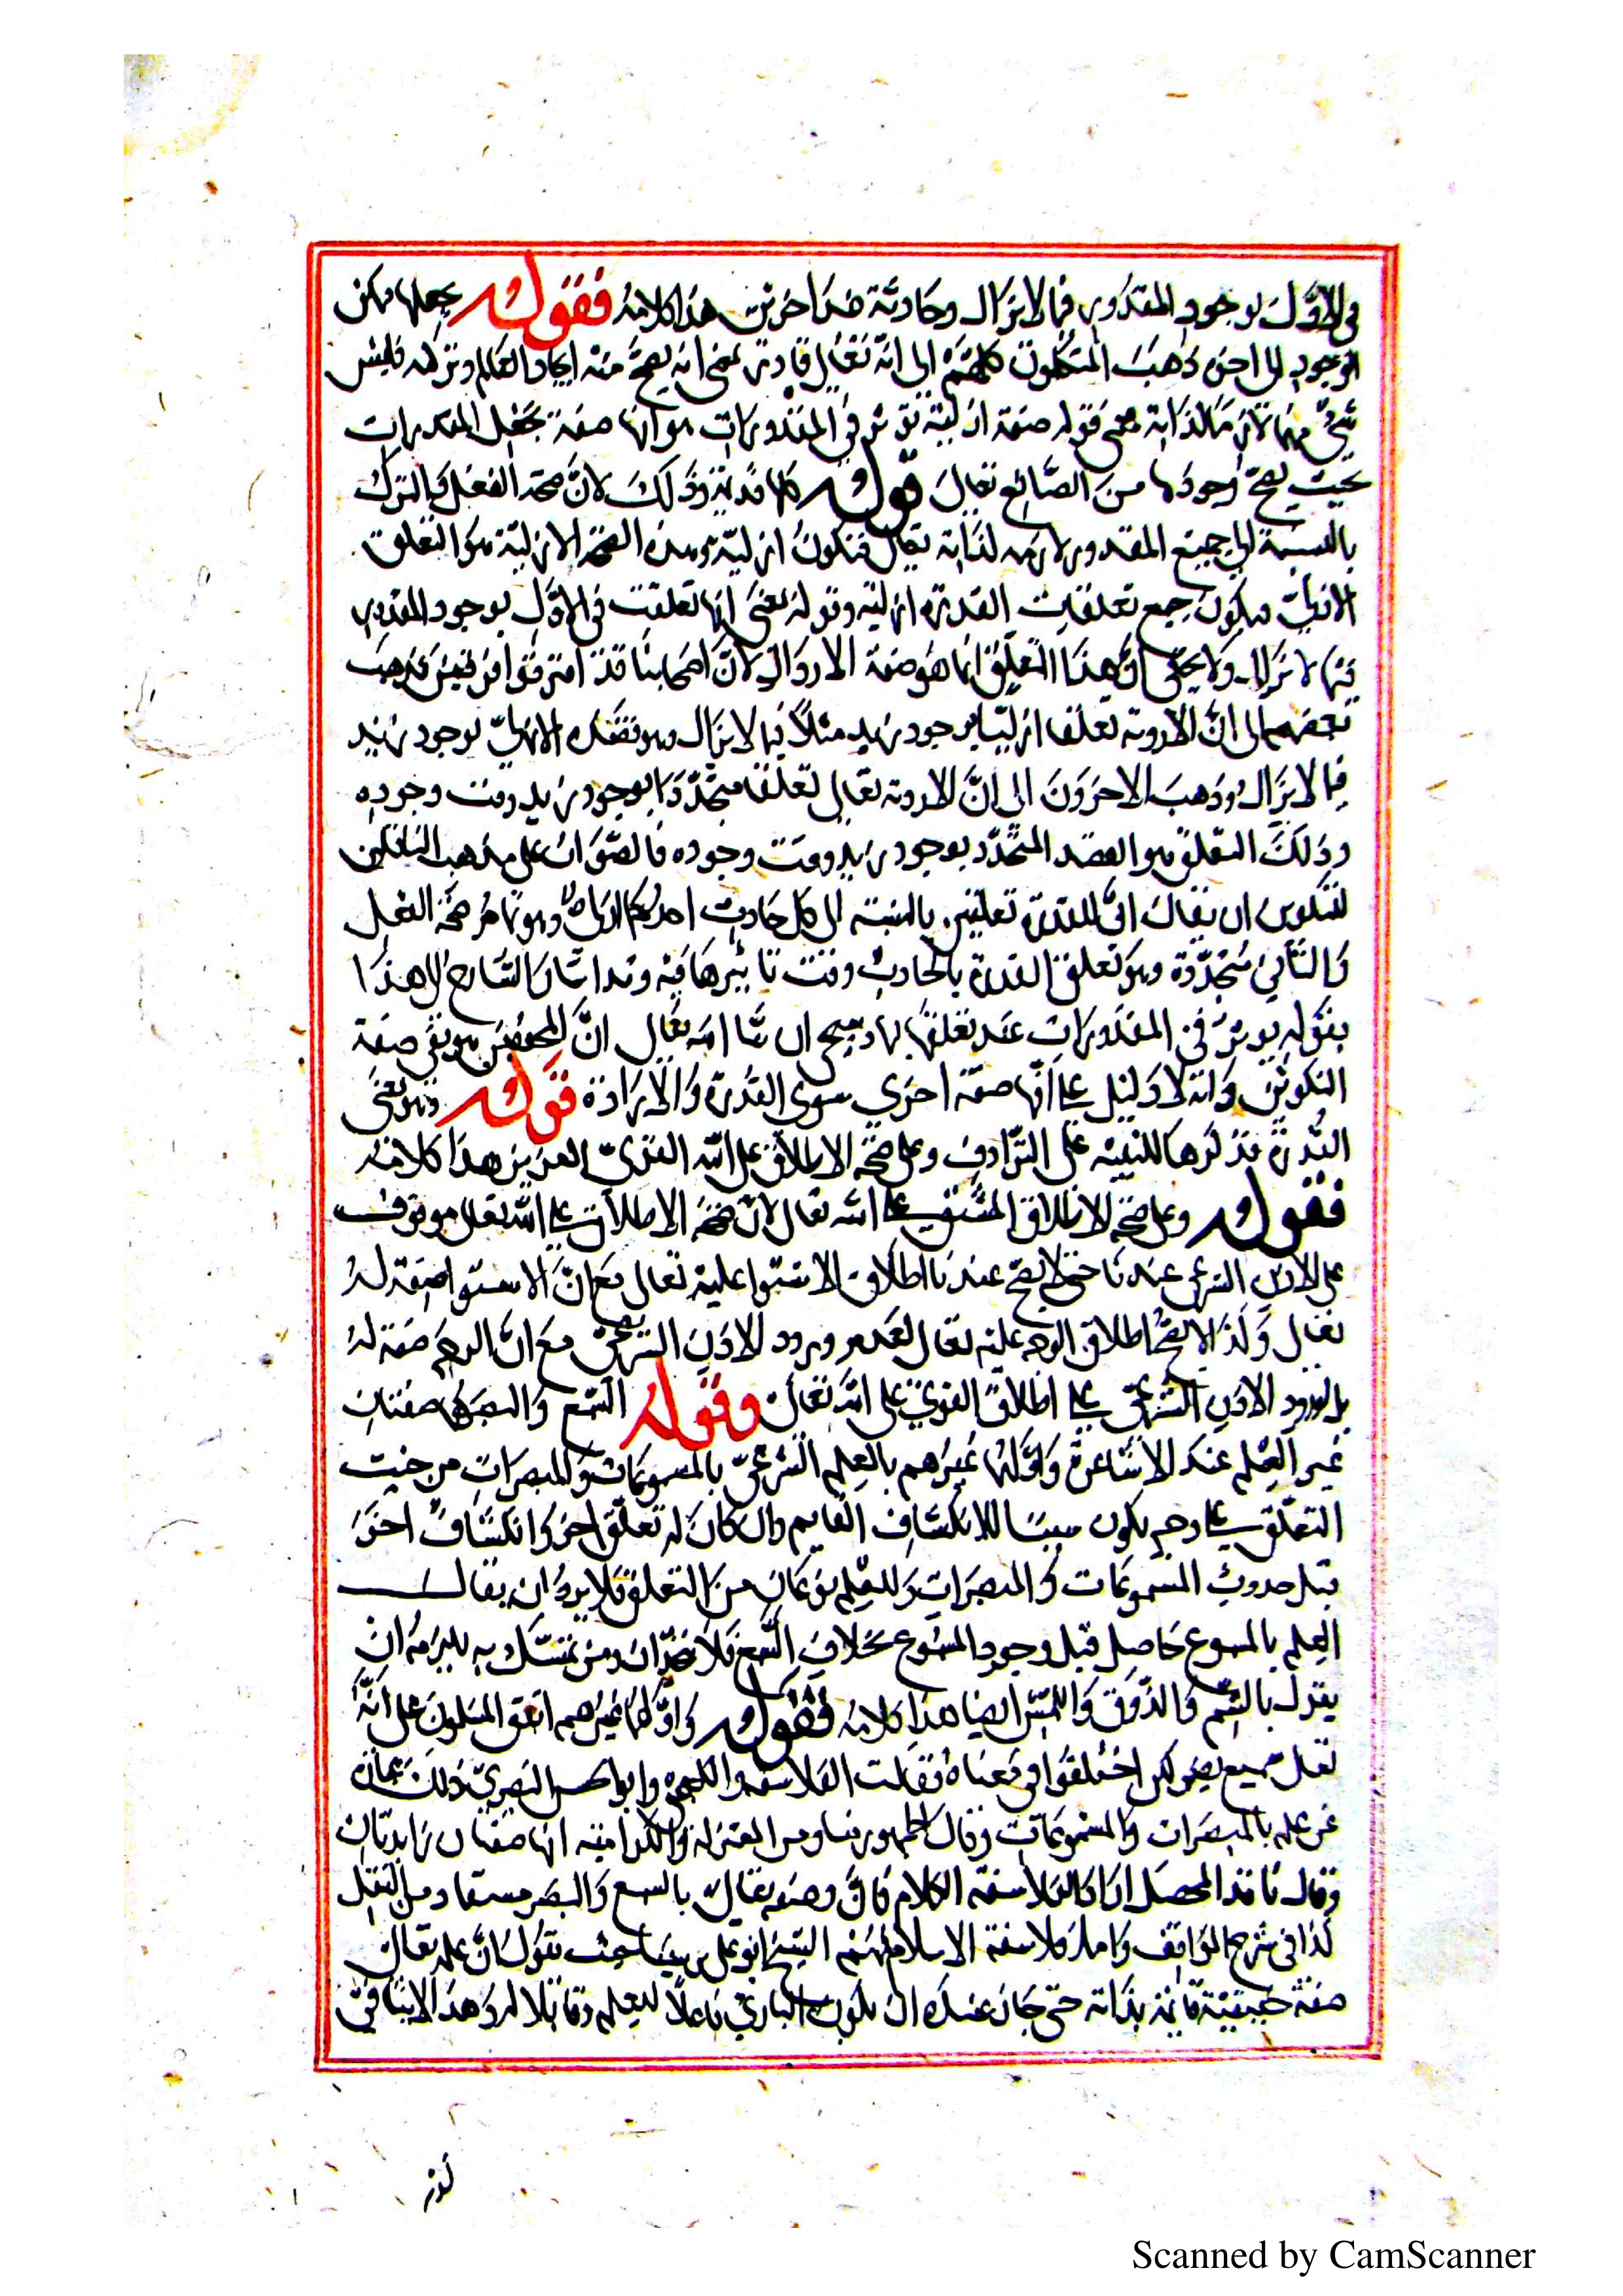 في الاول بوجود المقدور فيما لا يزال وحادثة عند اخرين هذا كلامه فقوله يجعلها ممكن
الوجود الى اخره ذهب المتكلمون كلهم الى انه تعالى قادر بمعنى انه يصح منه ايجاد العالم وتركه فليس
شيء منهما لازما لذاته معنى قوله صفة ازلية تؤثر في المقدورات هو انها صفة تجعل المقدورات
بحيث يصح وجودها من الصانع تعالى قوله كلها قديمة وذلك لان صحة الفعل والترك
بالنسبة الى جميع المقدور لازمه لذاته تعالى فتكون ازلية وهذه الصحة الازلية هو التعلق
الازلي فيكون جميع تعلقات القدرة ازلية وقوله يعني انها تعلقت في الاول بوجود المقدور
فيما لا يزال ولا يخفى ان هذا التعلق انما هو صفة الارادة لان اصحابنا قد افترقوا فرقتين فذهب
بعضهم الى ان للارادة تعلقا ازليا بوجود زيد مثلا فيما لا يزال وهو قصده الازلي بوجود زيد
فيما لا يزال وذهب الاخرون الى ان لارادته تعالى تعلقا متجددا بوجود زيد وقت وجوده
وذلك التعلق هو القصد المتجدد بوجود زيد وقت وجوده فالصواب على مذهب النافين
للتكوين ان يقال ان للقدرة تعلقين بالنسبة الى كل حادث احدهما ازلي وهو ما مر صحة الفعل
والثاني متجددة وهو تعلق القدرة بالحادث وقت تاثيرها فيه وقد اشار الشارح الى هذا
بقوله يؤثر في المقدورات عند تعلقها بها وسيجي ان شا الله تعالى ان المحققين هو نفي صفة
التكوين وانه لا دليل على انها صفة اخرى سوى القدرة والارادة قوله وهو بمعنى
القدرة فذكرها للتنبيه على الترادف وعلى صحة الاطلاق على الله القوي العزيز هذا كلامه
فقوله وعلى صحة الاطلاق المشتق على الله تعالى لان صحة الاطلاق على الله تعالى موقوف
على الاذن الشرعي عندنا حتى لا يصح عندنا اطلاق الاستوا عليه تعالى مع ان الاستوا صفة له
تعالى ولذا لا يصح اطلاق الوجه عليه تعالى لعدم ورود الاذن الشرعي مع ان الوجه صفة له
بل لورود الاذن الشرعي على اطلاق القوي على الله تعالى وقوله السمع والبصر هما صفتان
غير العلم عند الاشاعرة واولها غيرهم بالعلم الشرعي بالمسموعات والمبصرات من حيث
التعلق على وجه يكون سببا للانكشاف القايم وان كان له تعلق اخر وانكشاف اخر
قبل حدوث المسموعات والمبصرات وللعلم نوعان من التعلق فلا يرد ان يقال
العلم بالمسموع حاصل قبل وجود المسموع بخلاف السمع فلا يتحدان ومن تمسك به يلزمه ان
يقول بالشم والذوق واللمس ايضا هذا كلامه فقوله واولهما غيرهم اتفق المسلمون على انه
تعالى سميع بصير لكن اختلفوا في معناه فقالت الفلاسفة والكعبي وابو الحسين البصري ذلك عبارة
عن علمه بالمبصرات والمسموعات وقال الجمهور منا ومن المعتزلة والكرامية انها صفتان زايدتان
وقال ناقد المحصل اراد الفلاسفة الكلام فان وصفه تعالى بالسمع والبصر مستفاد من النقل
كذا في شرح المواقف واما فلاسفة الاسلام فمنهم الشيخ ابو علي بن سينا حيث يقول ان علمه تعالى
صفة حقيقية قايمة بذاته حتى جاز عنده ان يكون الباري فاعلا للعلم وقابلا له وهذا لا ينافي
Scanned by CamScanner